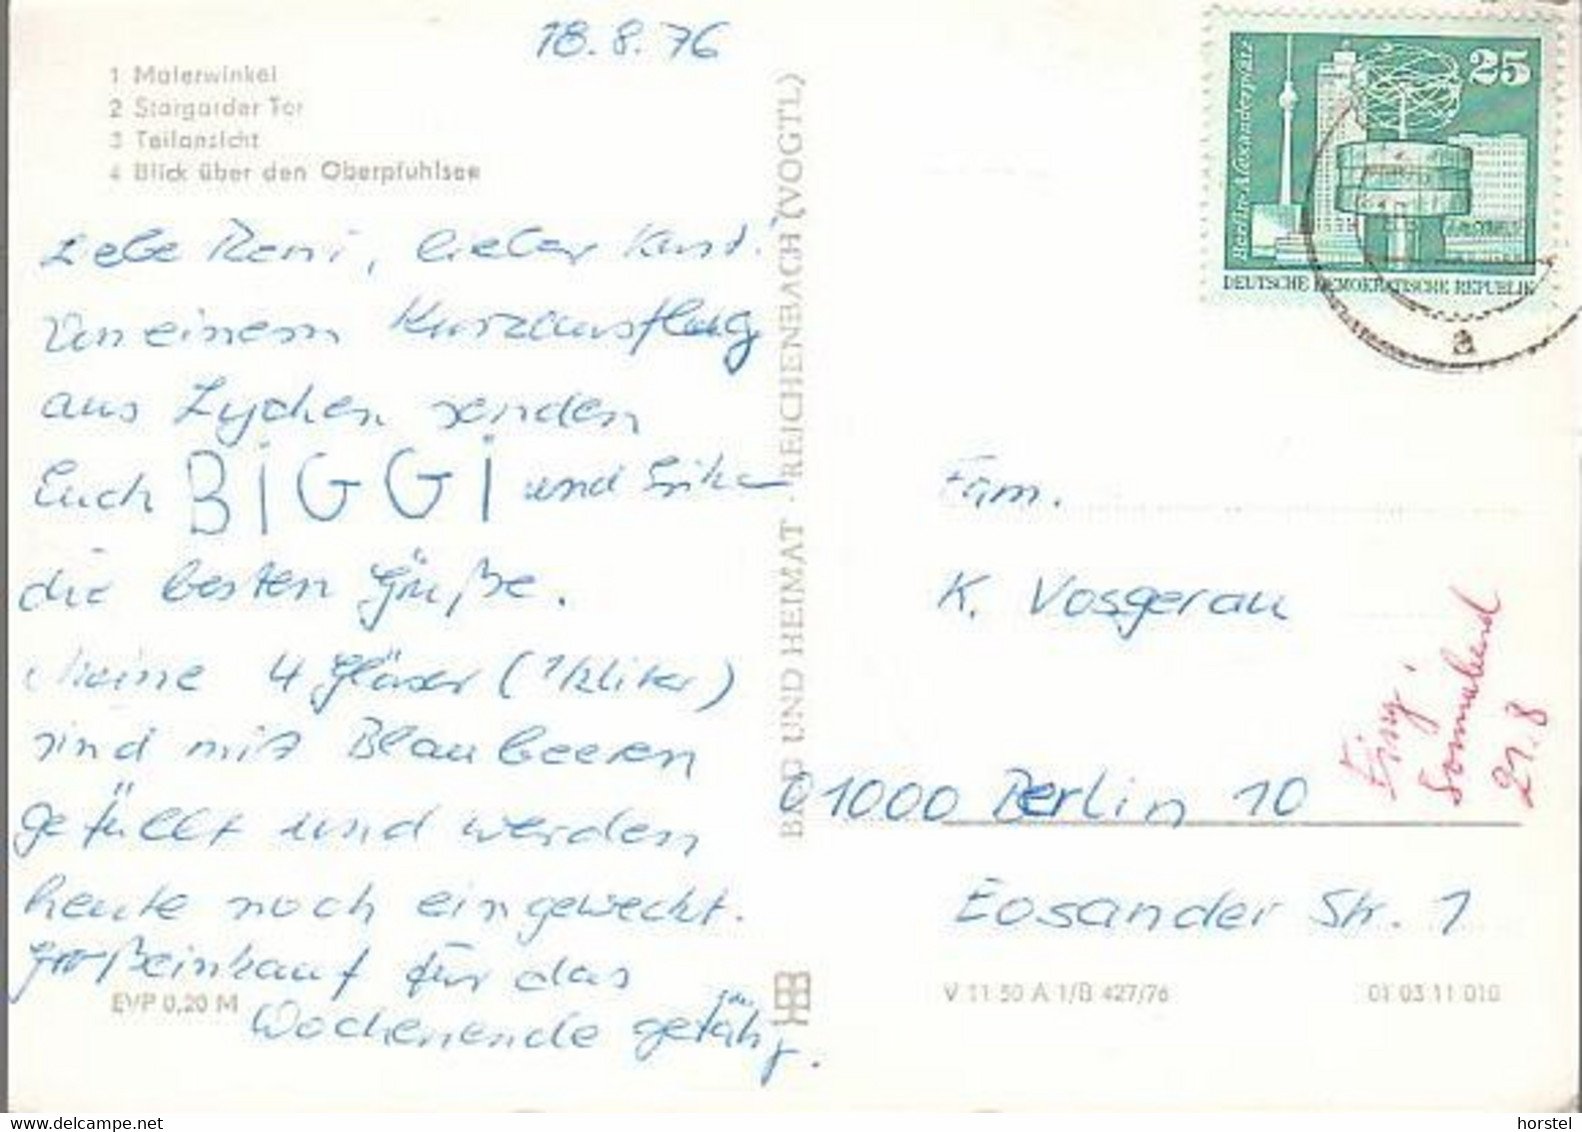 18.8.76
1 Malerwinkel
2 Stargarder Tor
3 Teilansicht
4 Blick über den Oberpfuhlsee
Liebe Reni, lieber Kurt!
Von einem Kurzausflug
aus Lychen senden
Euch BIGGI und Erika
die besten Grüße.
Meine 4 Gläser (1/2 Liter)
sind mit Blaubeeren
gefüllt und werden
heute noch eingeweckt.
Großeinkauf für das
Wochenende getätigt.
EVP 0,20 M
BILD UND HEIMAT · REICHENBACH (VOGTL)
25
Berlin-Alexanderplatz
DEUTSCHE DEMOKRATISCHE REPUBLIK
a
Fam.
K. Vosgerau
01000 Berlin 10
Eosander Str. 1
Eing.
Sonnabend
21.8
V 11 50 A 1/B 427/76
01 03 11 010
horstel